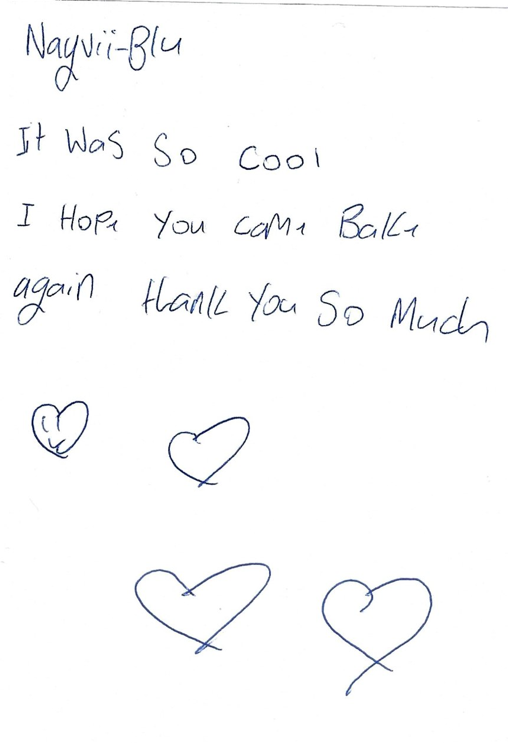 Nayvii-Blu
It Was So Cool
I Hope You Come Bake
again thank You So Much